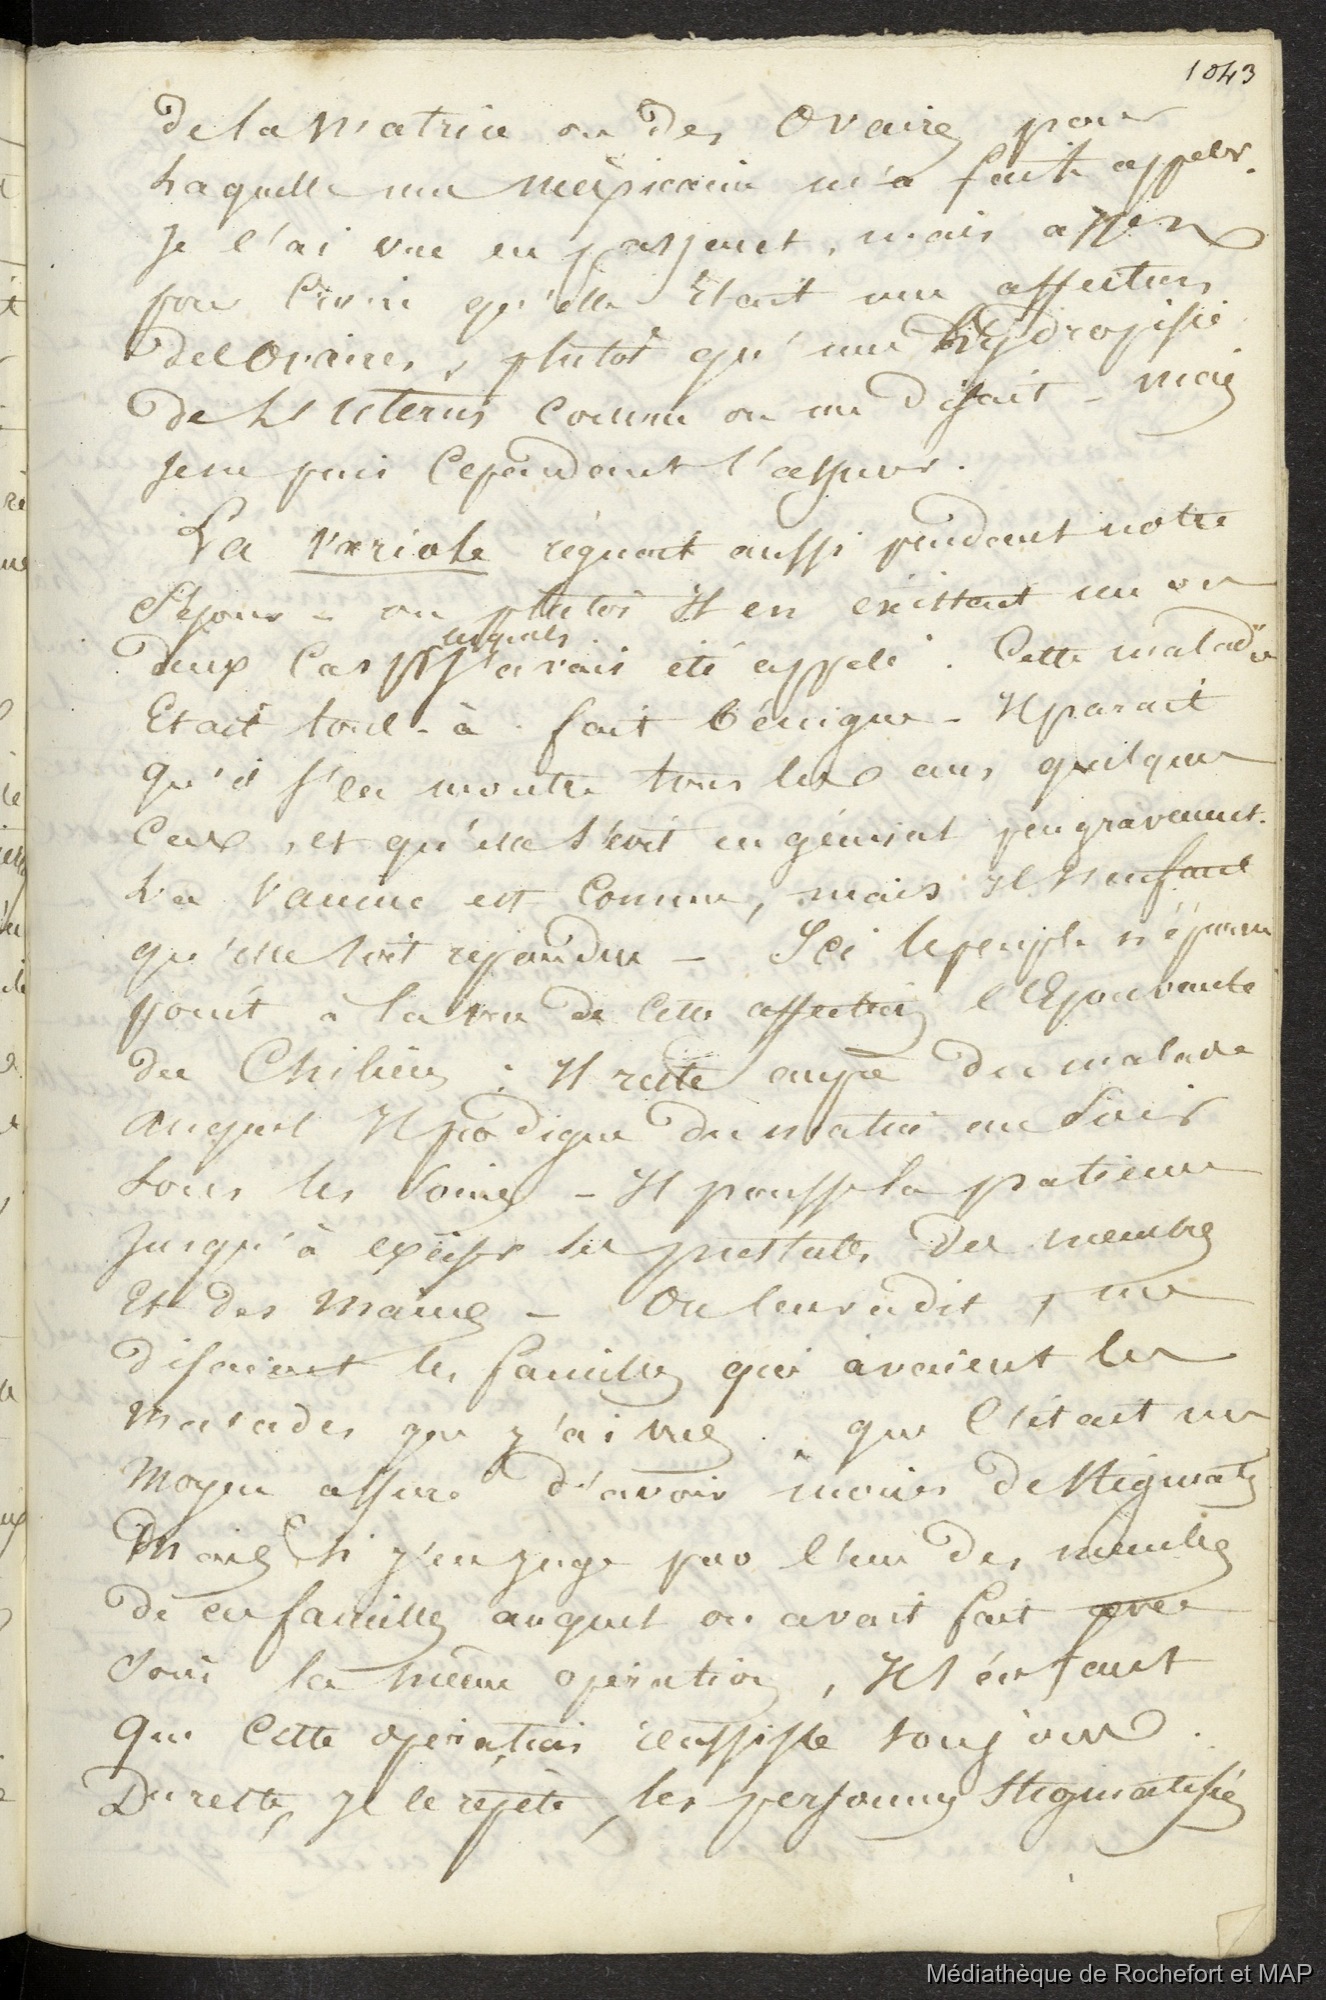 1043
de la Matrice ou des Ovaires pour
Laquelle une Mexicaine m'a fait appeler.
Je l'ai vue en passant, mais assez
pour Croire qu'elle Etait une affection
des Ovaires, plutôt qu'une hydropisie
de L'Uterus Comme on me disait - mais
je ne puis Cependant l'assurer.
La Variole régnait aussi pendant notre
Séjour - ou plutôt Il en existait un ou
lesquels
deux Cas j'avais été appelé. Cette maladie
Etait tout-à-fait bénigne - Il parait
qu'il s'en montre tous les ans quelques
Cas, et qu'elle sévit en général peu gravement.
La Vaccine est Connue, mais Il s'en faut
qu'elle soit répandue - Ici le peuple n'éprouve
point à la vue de Cette affection l'Epouvante
des Chiliens : Il reste auprès du malade
auquel Il prodigue du matin au Soir
tous les Soins - Il pousse la patience
jusqu'à exciser les pustules des membres
Et des Mains - On leur a dit, me
disaient les familles qui avaient les
Malades que j'ai vus. que C'était un
Moyen assuré d'avoir moins de Stigmates
Mais Si j'en juge par l'un des membres
de ces familles auquel on avait fait avec
Soin la même opération, Il s'en faut
que Cette opération réussisse toujours.
Du reste, Je le répète, les personnes Stigmatisées
Médiathèque de Rochefort et MAP